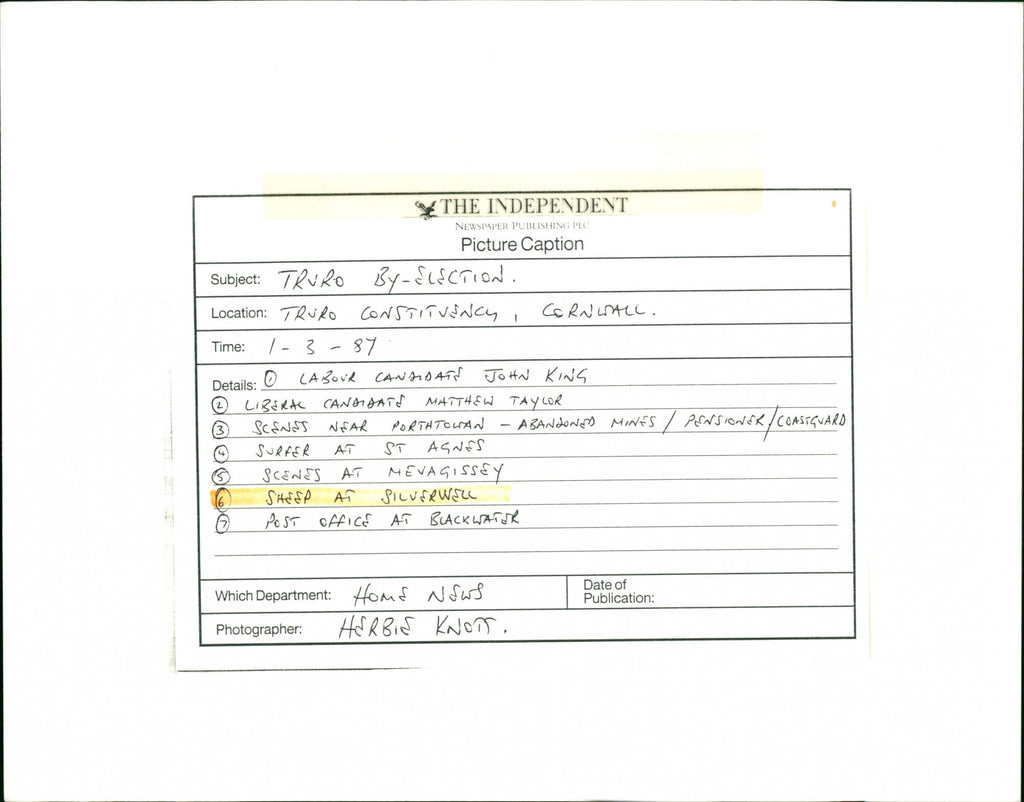 THE INDEPENDENT
NEWSPAPER PUBLISHING PLC
Picture Caption
Subject: TRURO BY-ELECTION.
Location: TRURO CONSTITUENCY, CORNWALL.
Time: 1-3-87
Details: ① LABOUR CANDIDATE JOHN KING
② LIBERAL CANDIDATE MATTHEW TAYLOR
③ SCENES NEAR PORTHTOWAN - ABANDONED MINES / PENSIONER / COASTGUARD
④ SURFER AT ST AGNES
⑤ SCENES AT MEVAGISSEY
⑥ SHEEP AT SILVERWELL
⑦ POST OFFICE AT BLACKWATER
Which Department: HOME NEWS
Date of
Publication:
Photographer: HERBIE KNOTT.